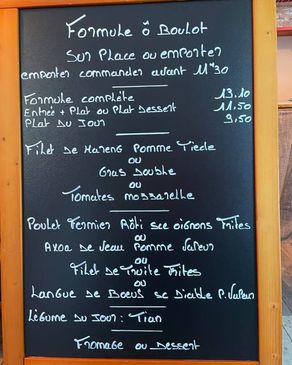 Formule ô Boulot
Sur Place ou emporter
emporter commander avant 11H30
Formule complète 13.10
Entrée + Plat ou Plat Dessert 11.50
Plat du Jour 9,50
Filet de Hareng Pomme Tiède
ou
Gras Double
ou
Tomates mozzarelle
Poulet Fermier Rôti sce oignons Frites
ou
Axoa de Veau Pomme Vapeur
ou
Filet de Truite Frites
ou
Langue de Boeuf sc Diable P. Vapeur
Légume du Jour : Tian
Fromage ou Dessert